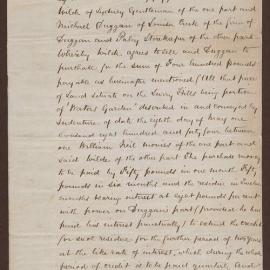 Wilde of Sydney Gentleman of the one part and
Michael Duggan of London Cook of the firm of
Duggan and Storekeeper of the other part
Whereby Wilde agrees to sell and Duggan to
purchase for the sum of Four hundred pounds
payable as hereinafter mentioned (All that piece
of Land situate on the Surry Hills being portion
of "Waters Garden" described in and conveyed by
Indenture of date the eighth day of May one
thousand eight hundred and forty four between
one William Neil of the one part and
said Wilde of the other part The purchase money
to be paid by Fifty pounds in one month Fifty
pounds in six months and the residue in twelve
months bearing interest at eight pounds per cent
with power on Duggans part (provided he has
paid his interest punctually) to extend the credit
for such residue for the further period of two years
at the like rate of interest, which during the whole
period of credit is to be paid quarterly